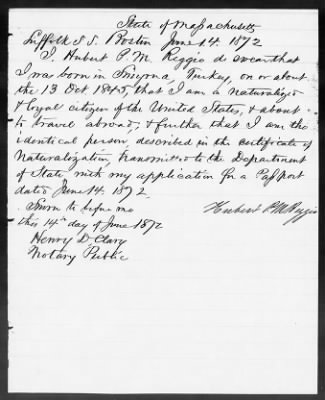 State of Massachusetts
Suffolk S.S. Boston June 14. 1872
I, Hubert P. M. Reggio do swear that
I was born in Smyrna, Turkey, on or about
the 13 Oct 1845, that I am a naturalized
& loyal citizen of the United States, & about
to travel abroad, & further that I am the
identical person, described in the Certificate of
Naturalization, transmitted to the Department
of State with my application for a Passport
dated June 14. 1872.
Sworn to before me
this 14th day of June 1872
Hubert P M Reggio
Henry D Clary
Notary Public